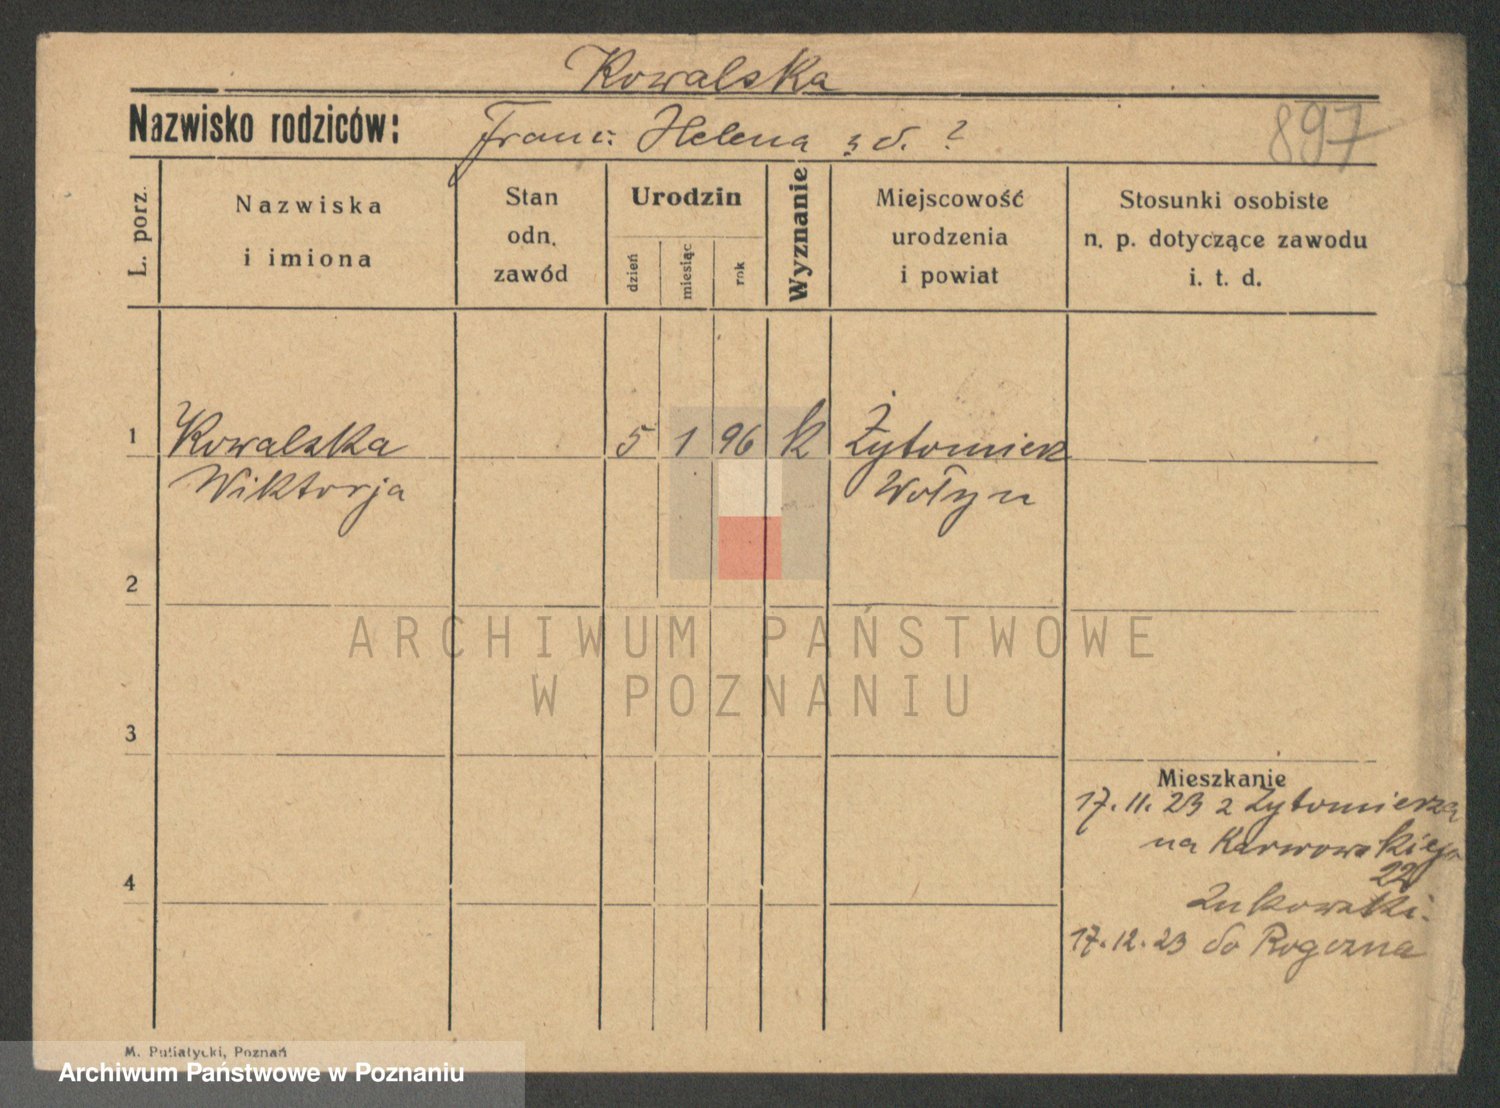 Kowalska
Nazwisko rodziców: Franc. Helena z d. ?
897
L. porz.
Nazwiska
i imiona
Stan
odn.
zawód
Urodzin
dzień
miesiąc
rok
Wyznanie
Miejscowość
urodzenia
i powiat
Stosunki osobiste
n. p. dotyczące zawodu
i. t. d.
1 Kowalska 5 1 96 k Żytomierz
Wiktorja Wołyn
2
ARCHIWUM PAŃSTWOWE
W POZNANIU
3
Mieszkanie
17.11.23 z Żytomierza
na Karwowskiego
22
4
Lukowski.
17.12.23 do Rogozna
M. Putiatycki, Poznań
Archiwum Państwowe w Poznaniu